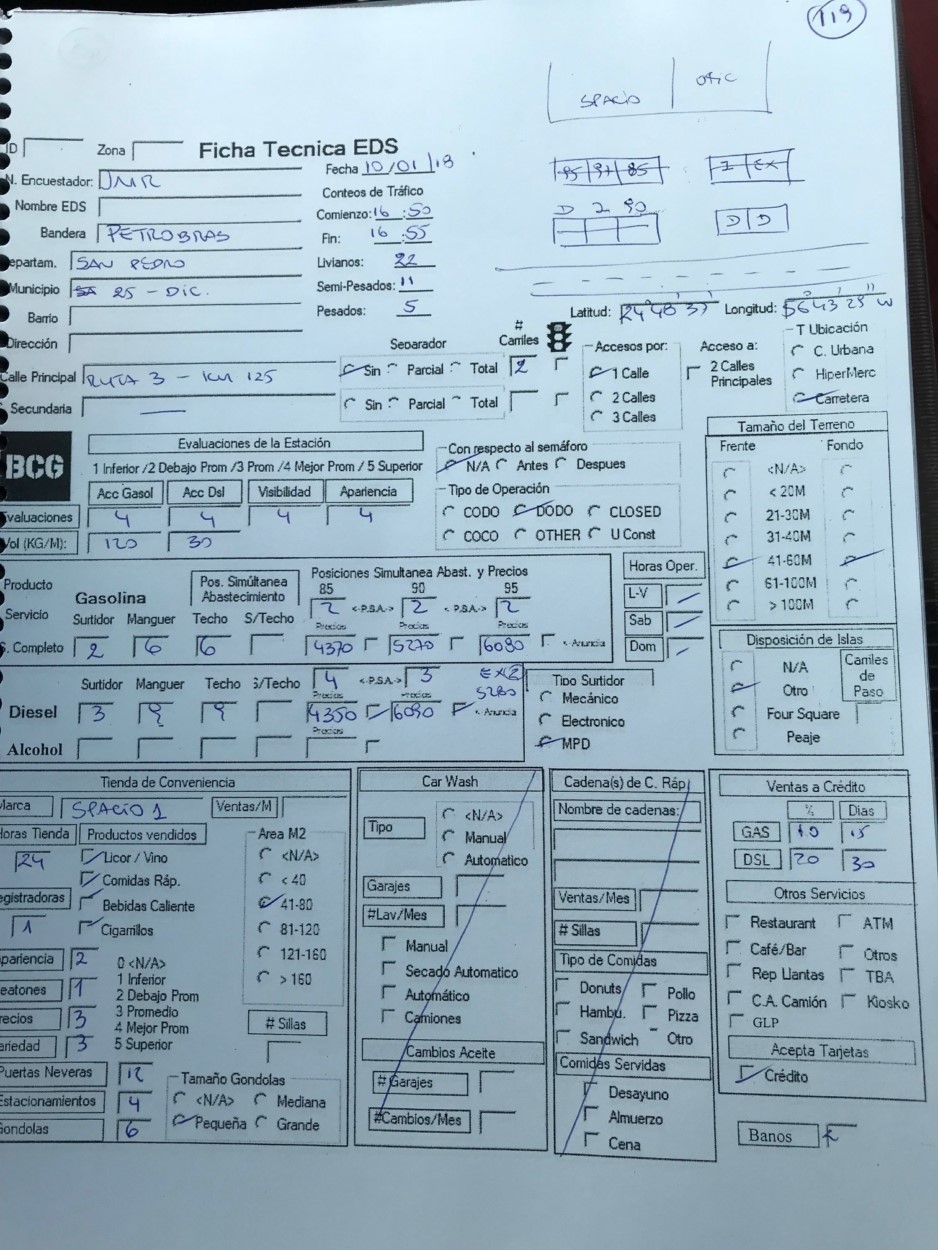 119
SPACIO OFIC
ID Zona Ficha Tecnica EDS
Fecha 10/01/18
95 97 85 I EX
N. Encuestador: JMR
Conteos de Tráfico
Nombre EDS
Comienzo: 16:50
D 2 90 D D
Bandera PETROBRAS
Fin: 16:55
epartam. SAN PEDRO
Livianos: 22
Municipio 25 - DIC.
Semi-Pesados: 11
Barrio
Pesados: 5
Latitud: Longitud:
Dirección
Separador # Carriles
Accesos por: Acceso a: T Ubicación
Calle Principal RUTA 3 - KM 125 Sin Parcial Total 2
1 Calle 2 Calles Principales C. Urbana
2 Calles HiperMerc
Secundaria — Sin Parcial Total
3 Calles Carretera
BCG
Evaluaciones de la Estación
1 Inferior /2 Debajo Prom /3 Prom /4 Mejor Prom / 5 Superior
Acc Gasol Acc Dsl Visibilidad Apariencia
valuaciones 4 4 4 4
Vol (KG/M): 120 30
Con respecto al semáforo
N/A Antes Despues
Tipo de Operación
CODO DODO CLOSED
COCO OTHER U Const
Tamaño del Terreno
Frente Fondo
<N/A>
< 20M
21-30M
31-40M
41-60M
61-100M
> 100M
Producto Gasolina
Pos. Simúltanea Abastecimiento
Posiciones Simultanea Abast. y Precios
85 90 95
Servicio 2 <-P.S.A.-> 2 <-P.S.A.-> 2
Surtidor Manguer Techo S/Techo Precios Precios Precios
S. Completo 2 6 6 4370 5270 6080 <-Anuncia
Horas Oper.
L-V
Sab
Dom
Surtidor Manguer Techo S/Techo 4 <-P.S.A.-> 3 EX2
Precios Precios 5280
Diesel 3 9 9 4350 6090 <-Anuncia
Precios
Alcohol
Tipo Surtidor
Mecánico
Electronico
MPD
Disposición de Islas
N/A Carriles de Paso
Otro
Four Square
Peaje
Tienda de Conveniencia
Marca SPACIO 1 Ventas/M
Horas Tienda Productos vendidos Area M2
24 Licor / Vino <N/A>
Comidas Ráp. < 40
egistradoras Bebidas Caliente 41-80
1 Cigarrillos 81-120
pariencia 2 0 <N/A> 121-160
1 Inferior > 160
eatones 1 2 Debajo Prom
recios 3 3 Promedio
4 Mejor Prom # Sillas
ariedad 3 5 Superior
Puertas Neveras 12 Tamaño Gondolas
Estacionamientos 4 <N/A> Mediana
Gondolas 6 Pequeña Grande
Car Wash
Tipo <N/A>
Manual
Automatico
Garajes
#Lav/Mes
Manual
Secado Automatico
Automático
Camiones
Cambios Aceite
#Garajes
#Cambios/Mes
Cadena(s) de C. Ráp.
Nombre de cadenas:
Ventas/Mes
# Sillas
Tipo de Comidas
Donuts Pollo
Hambu. Pizza
Sandwich Otro
Comidas Servidas
Desayuno
Almuerzo
Cena
Ventas a Crédito
% Dias
GAS 10 15
DSL 20 30
Otros Servicios
Restaurant ATM
Café/Bar Otros
Rep Llantas TBA
C.A. Camión Kiosko
GLP
Acepta Tarjetas
Crédito
Banos